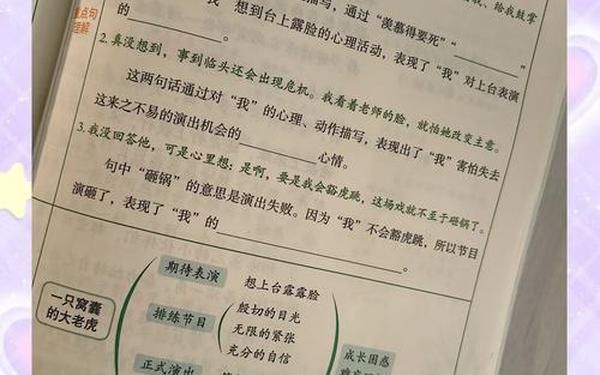 我、给我鼓掌
描写，通过“羡慕得要死”“________”
重点句
理解
我”想到台上露脸的心理活动，表现了“我”对上台表演
的________。
2.真没想到，事到临头还会出现危机。我看着老师的脸，就怕她改变主意。
这两句话通过对“我”的心理、动作描写，表现出了“我”害怕失去
这来之不易的演出机会的________心情。
3.我没回答他，可是心里想：是啊，要是我会豁虎跳，这场戏就不至于砸锅了。
句中“砸锅”的意思是演出失败。因为“我”不会豁虎跳，所以节目
演砸了，表现了“我”的________。
一只窝囊
的大老虎
期待表演
想上台露露脸
排练节目
殷切的目光
无限的紧张
充分的自信
正式演出
成长困惑